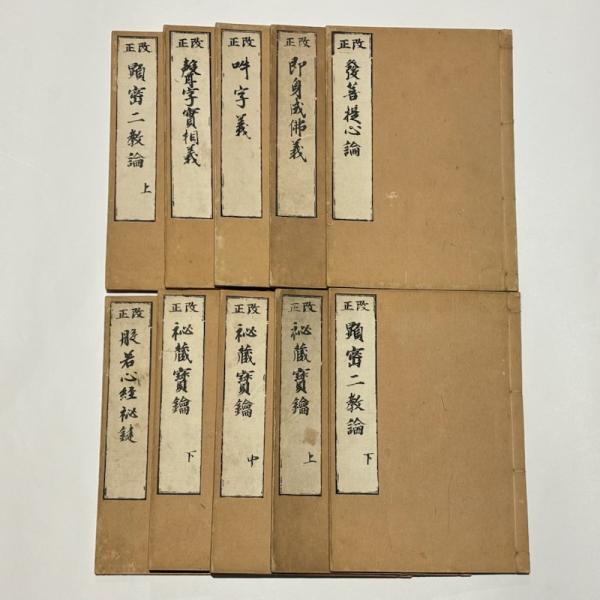 改正
發菩提心論
改正
即身成佛義
改正
吽字義
改正
聲字實相義
改正
顕密二教論
上
改正
顕密二教論
下
改正
祕藏寶鑰
上
改正
祕藏寶鑰
中
改正
祕藏寶鑰
下
改正
般若心経祕鍵